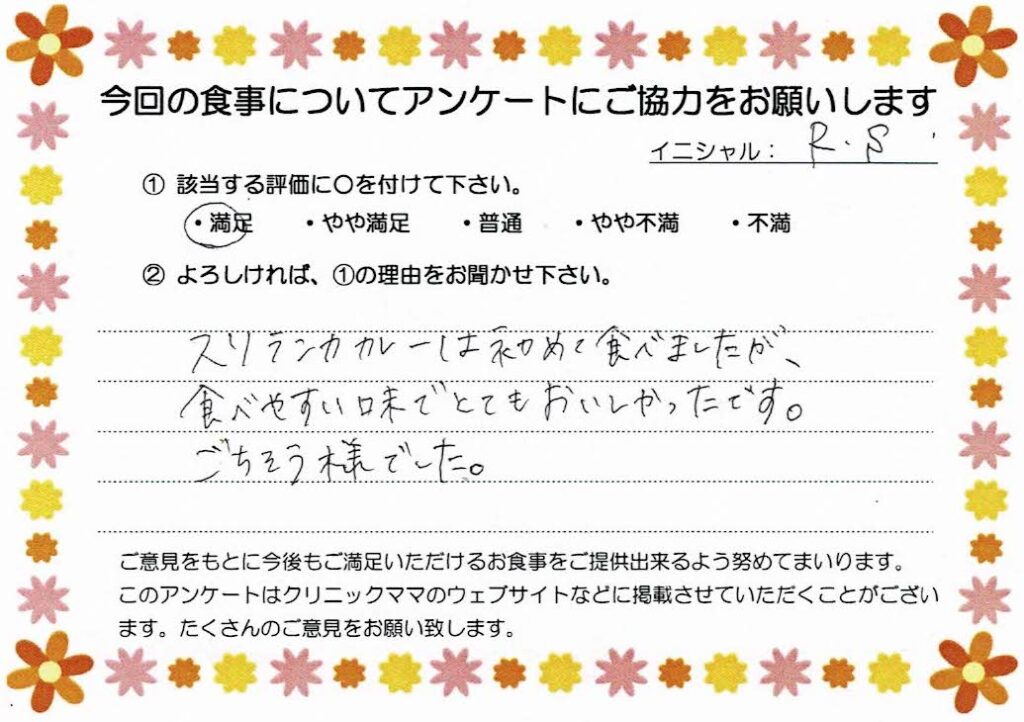 今回の食事についてアンケートにご協力をお願いします
イニシャル： R.S
① 該当する評価に〇を付けて下さい。
・満足 ・やや満足 ・普通 ・やや不満 ・不満
② よろしければ、①の理由をお聞かせ下さい。
スリランカカレーは初めて食べましたが、
食べやすい味でとてもおいしかったです。
ごちそう様でした。
ご意見をもとに今後もご満足いただけるお食事をご提供出来るよう努めてまいります。
このアンケートはクリニックママのウェブサイトなどに掲載させていただくことがござい
ます。たくさんのご意見をお願い致します。